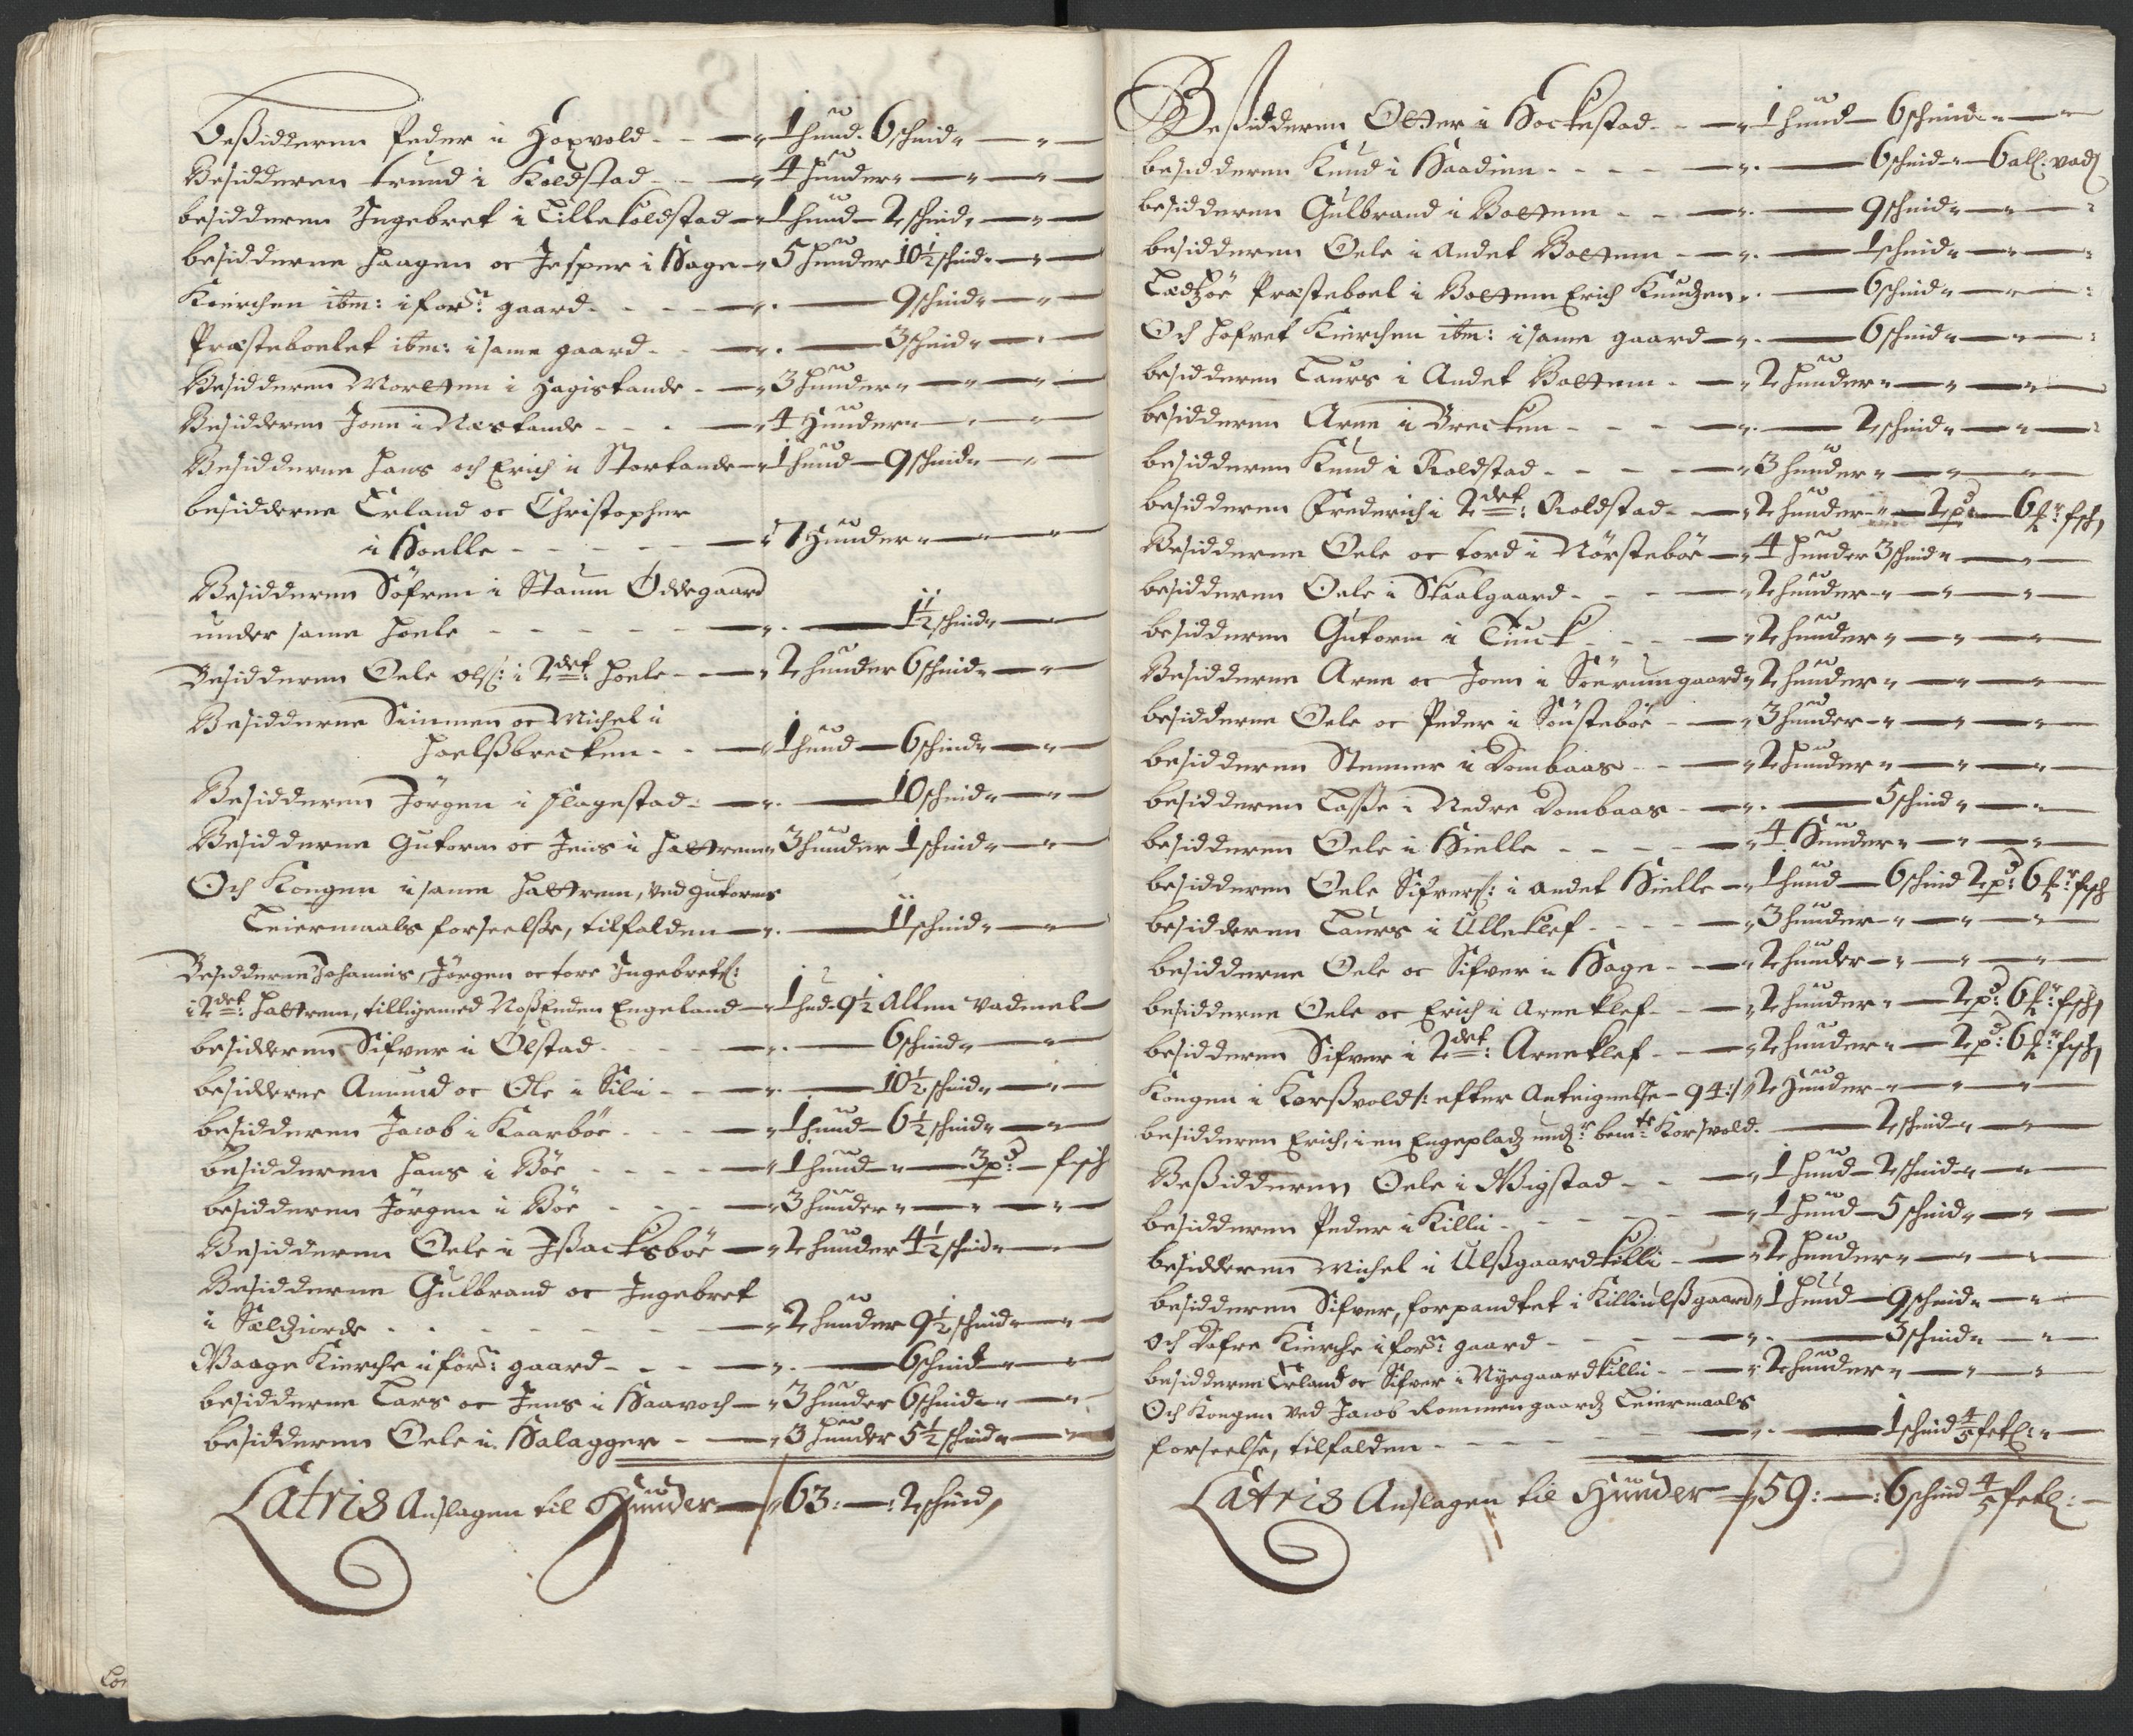 Beßidderen Peder i Hoxvold - - 1 hund. 6 schind
Besidderen trund i Koldstad - 4 hunder
besidderen Ingebret i Lillekoldstad 1 hund 2 schind
besidderne Haagen oc Jesper i Hage 5 hunder 10½ schind
Kierchen ibm: i forn: gaard - - - 9 schind
Præsteboelet ibm: i same gaard - 3 schind
Besidderen Morten i Hagistande - 3 hunder
Besidderen Joen i Næstande - - - 4 Hunder
Besidderne Hans och Erich i Storkande 1 hund 9 schind
besidderne Erland oc Christopher
i Hoelle - - - - 7 Hunder
Besidderen Söfren i Staum Ödegaard
under same Hoele - - - - 1½ schind
Besidderen Oele ols: i 2det: Hoele - 2 hunder 6 schind
Besidderne Simmen oc Michel i
Hoelßbrecken - - 1 hund 6 schind
Besidderen Jörgen i Flagestad - 10 schind
Besidderne Gutorm oc Jens i Hattrem 3 hunder 1 schind
Och Kongen i same Hattrem, ved gutorms
Leiermaals forseelße, tilfalden 11 schind
Besidderne Johannis, Jörgen oc tore Ingebrets:
i 2det: Hattrem, tilligemed Noßenden Engeland 1 hud 9½ Allen vadmel
besidderen Sifver i Ölstad - 6 schind
besidderne Amund oc Ole i Sili - 10½ schind
besidderen Jacob i Kaarböe - 1 hund 6½ schind
besidderen Hans i Böe - - - 1 hund 3 pd: fisch
besidderen Jörgen i Böe - - - 3 hunder
Besidderen Oele i Ißacksböe 2 hunder 4½ schind
Besidderne Gulbrand oc Ingebret
i Sælgiorde - - - - 2 hunder 9½ schind
Waage Kierche i forn: gaard - - - 6 schind
besidderne Lars oc Jens i Haavoch 3 hunder 6 schind
besidderen Oele i Salagger - - 3 hunder 5½ schind
Latris Anslagen til Hunder 63: 2 schind
Beßidderen Otter i Hockestad - 1 hund 6 schind
besidderen Knud i Haadien - - - 6 schind 6 all: vadl
besidderen Gulbrand i Bottem - - 9 schind
besidderen Oele i Andet Bottem - 1 schind
Lædzöe Præsteboel i Bottem Erich Knudzen 6 schind
Och Hofvet Kierchen ibm: i same gaard 6 schind
besidderen Laurs i Andet Bottem - 2 hunder
besidderen Arne i Brecken - - - 2 schind
besidderen Knud i Roldstad - - - 3 hunder
besidderen Frederich i 2det: Roldstad - 2 hunder 2 pd 6 fr: fisch
Besidderne Oele oc tord i Nörsteböe 4 hunder 3 schind
besidderen Oele i Skaalgaard - - 2 hunder
besidderen Gutorm i Tiuck - - 2 hunder
Besidderne Arne oc Joen i Söerumgaard 2 hunder
besidderne Oele oc Peder i Söusteböe - 3 hunder
besidderen Stenner i Dombaas - 2 hunder
besidderen Laße i Nedre Dombaas - 5 schind
besidderen Oele i Hielle - - - 4 Hunder
besidderen Oele Sifvers: i andet Hielle 1 hund 6 schind 2 pd: 6 fr: fisch
besidderen Laurs i Ulleklef - - - 3 hunder
besidderne Oele oc Sifver i Hage - 2 hunder
besidderne Oele oc Erich i Arneklef - 2 hunder 2 pd: 6 fr: fisch
besidderen Sifver i 2det: Arneklef - 2 hunder 2 pd: 6 fr: fisch
Kongen i Korßvold /: efter Anteignelse - 94 :/ 2 Hunder
besidderen Erich, i en Engepladz undr: bemte: Korsvold. 2 schind
Beßidderen Oele i Wigstad - - 1 hund 2 schind
besidderen Peder i Killi - - - 1 hund 5 schind
besidderen Michel i Ulßgaardkilli 2 hunder
besidderen Sifver, forpandtet i Killiulßgaard 1 hund 9 schind
och Dofre Kierche i forn: gaard - - 3 schind
besidderne Erland oc Sifver i Nyegaardkilli - 2 hunder
Och Kongen ved Jacob Rommengaardz Leiermaals
forseelse, tilfalden - - - - 1 schind 4/5 fetl:
Latris Anslagen til Hunder 59: 6 schind 4/5 fetl: